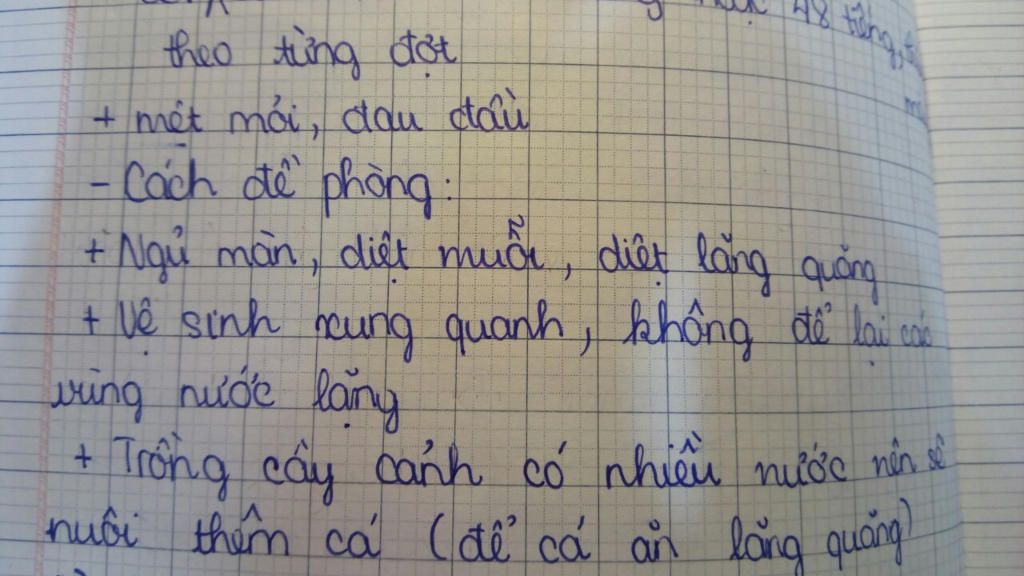 48 tiếng,
theo từng đợt
+ mệt mỏi, đau đầu
- Cách đề phòng:
+ Ngủ màn, diệt muỗi, diệt lăng quăng
+ Vệ sinh xung quanh, không để lại các
vùng nước lặng
+ Trồng cây cảnh có nhiều nước nên sẽ
nuôi thêm cá (để cá ăn lăng quăng)